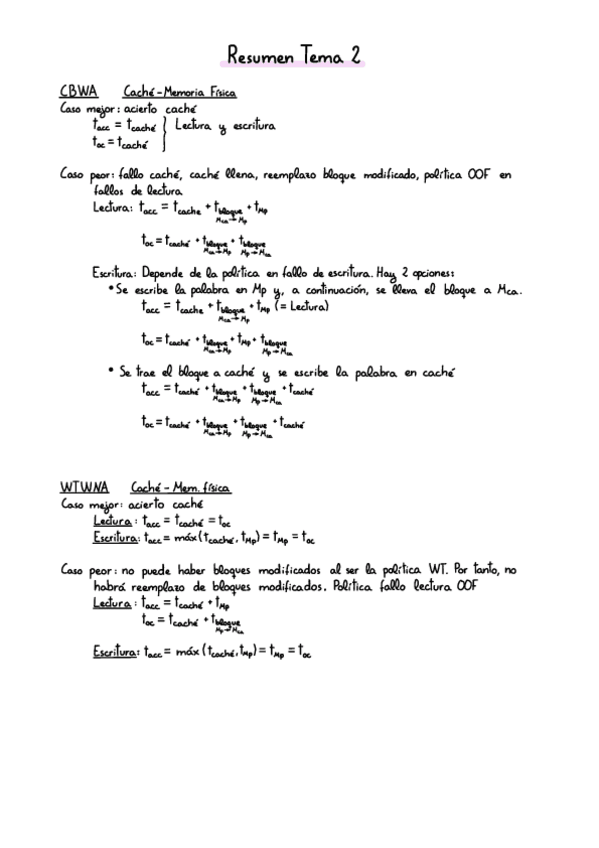 Resumen Tema 2
CBWA Caché-Memoria Física
Caso mejor: acierto caché
tacc = tcaché } Lectura y escritura
toc = tcaché
Caso peor: fallo caché, caché llena, reemplazo bloque modificado, política OOF en
fallos de lectura
Lectura: tacc = tcache + tbloque Mca→Mp + tMp
toc = tcaché + tbloque Mca→Mp + tbloque Mp→Mca
Escritura: Depende de la política en fallo de escritura. Hay 2 opciones:
• Se escribe la palabra en Mp y, a continuación, se lleva el bloque a Mca.
tacc = tcache + tbloque Mca→Mp + tMp (= Lectura)
toc = tcaché + tbloque Mca→Mp + tMp + tbloque Mp→Mca
• Se trae el bloque a caché y se escribe la palabra en caché
tacc = tcaché + tbloque Mca→Mp + tbloque Mp→Mca + tcaché
toc = tcaché + tbloque Mca→Mp + tbloque Mp→Mca + tcaché
WTWNA Caché - Mem. física
Caso mejor: acierto caché
Lectura: tacc = tcaché = toc
Escritura: tacc = máx(tcaché, tMp) = tMp = toc
Caso peor: no puede haber bloques modificados al ser la política WT. Por tanto, no
habrá reemplazo de bloques modificados. Política fallo lectura OOF
Lectura: tacc = tcaché + tMp
toc = tcaché + tbloque Mp→Mca
Escritura: tacc = máx (tcaché, tMp) = tMp = toc